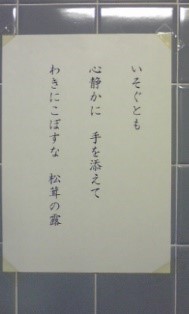 いそぐとも
心静かに　手を添えて
わきにこぼすな　松茸の露